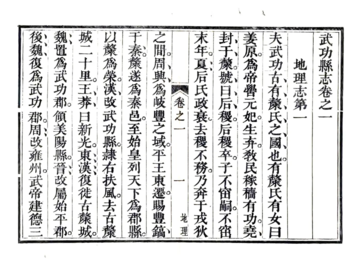 武功縣志卷之一
地理志第一
夫武功古有斄氏之國也有斄氏有女曰
姜原為帝嚳元妃生弃教民稼穡有功堯
封于斄號曰后稷后稷卒子不窋嗣不窋
末年夏后氏政衰去稷不務乃奔于戎狄
卷之一
一
地理
之間周興為岐豐之域平王東遷賜豐鎬
于秦斄遂為秦邑至始皇列天下為郡縣
以斄為㶒漢改武功縣隸右扶風去古斄
城二十里王莽曰新光東漢復徙古斄城
魏置為武功郡領美陽縣晉改屬始平郡
後魏復為武功郡周改雍州武帝建德三